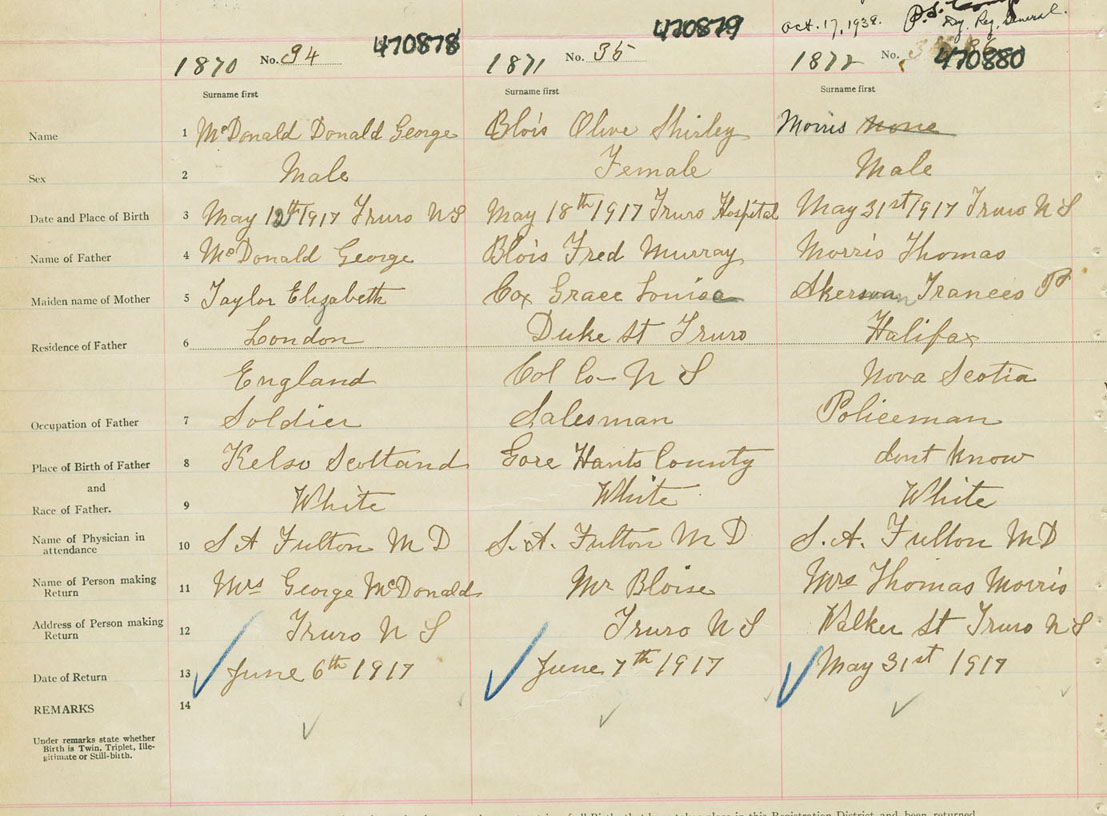 Oct. 17, 1938. Reg. General.
1870 No. 34 470878 1871 No. 35 470879 1872 No. 36 470880
Surname first Surname first Surname first
Name 1 McDonald Donald George Blois Olive Shirley Morris None
Sex 2 Male Female Male
Date and Place of Birth 3 May 12th 1917 Truro N S May 18th 1917 Truro Hospital May 31st 1917 Truro N S
Name of Father 4 McDonald George Blois Fred Murray Morris Thomas
Maiden name of Mother 5 Taylor Elizabeth Cox Grace Louise Akerman Frances P
Residence of Father 6 London Duke St Truro Halifax
England Col Co - N S Nova Scotia
Occupation of Father 7 Soldier Salesman Policeman
Place of Birth of Father 8 Kelso Scotland Gore Hants County dont know
and
Race of Father. 9 White White White
Name of Physician in
attendance 10 S A Fulton M D S. A. Fulton M D S. A. Fulton M D
Name of Person making
Return 11 Mrs George McDonald Mr Bloise Mrs Thomas Morris
Address of Person making
Return 12 Truro N S Truro N S Walker St Truro N S
Date of Return 13 June 6th 1917 June 7th 1917 May 31st 1917
REMARKS 14
Under remarks state whether
Birth is Twin, Triplet, Ille-
gitimate or Still-birth.